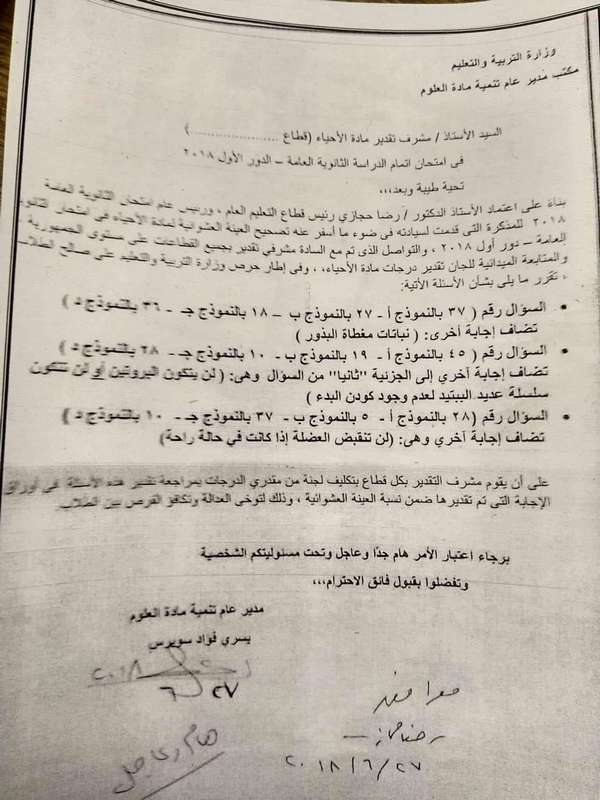 وزارة التربية والتعليم
مكتب مدير عام تنمية مادة العلوم
السيد الأستاذ / مشرف تقدير مادة الأحياء (قطاع .....................)
فى امتحان اتمام الدراسة الثانوية العامة – الدور الأول ٢٠١٨
تحية طيبة وبعد،،،
بناءً على اعتماد الأستاذ الدكتور / رضا حجازي رئيس قطاع التعليم العام ، ورئيس عام امتحان الثانوية العامة
٢٠١٨ للمذكرة التى قدمت لسيادته فى ضوء ما أسفر عنه تصحيح العينة العشوائية لمادة الأحياء فى امتحان الثانوية
العامة – دور أول ٢٠١٨ ، والتواصل الذى تم مع السادة مشرفي تقدير بجميع القطاعات على مستوى الجمهورية
والمتابعة الميدانية للجان تقدير درجات مادة الأحياء، ، وفى إطار حرص وزارة التربية والتعليم على صالح الطلاب
، تقرر ما يلى بشأن الأسئلة الأتية:
• السؤال رقم ( ٣٧ بالنموذج أ - ٢٧ بالنموذج ب – ١٨ بالنموذج جـ - ٣٦ بالنموذج د )
تضاف إجابة أخرى: ( نباتات مغطاة البذور )
• السؤال رقم ( ٤٥ بالنموذج أ - ١٩ بالنموذج ب - ١٠ بالنموذج جـ - ٢٨ بالنموذج د )
تضاف إجابة آخري إلى الجزئية "ثانيا" من السؤال وهى: ( لن يتكون البروتين أو لن تتكون
سلسلة عديد الببتيد لعدم وجود كودن البدء )
• السؤال رقم (٢٨ بالنموذج أ - ٥ بالنموذج ب - ٣٧ بالنموذج جـ - ١٠ بالنموذج د )
تضاف إجابة آخري وهى: (لن تنقبض العضلة إذا كانت في حالة راحة)
على أن يقوم مشرف التقدير بكل قطاع بتكليف لجنة من مقدري الدرجات بمراجعة تقدير هذه الأسئلة فى أوراق
الإجابة التى تم تقديرها ضمن نسبة العينة العشوائية ، وذلك لتوخى العدالة وتكافؤ الفرص بين الطلاب.
برجاء اعتبار الأمر هام جدًا وعاجل وتحت مسئوليتكم الشخصية
وتفضلوا بقبول فائق الاحترام،،،
مدير عام تنمية مادة العلوم
يسري فؤاد سويرس
٢٠١٨
٦ ٢٧
رضا حجازى
٢٠١٨/٦/٢٧
هام وعاجل